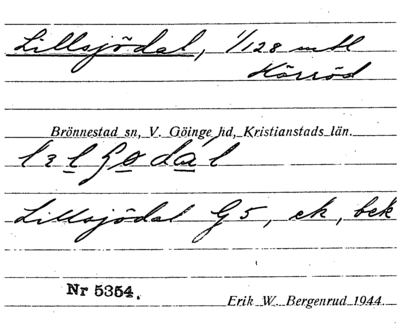 Lillsjödal, 1/128 mtl
Hörröd
Brönnestad sn, V. Göinge hd, Kristianstads län.
Lillsjödal G5, ek, bek
Nr 5354.
Erik W. Bergenrud 1944.